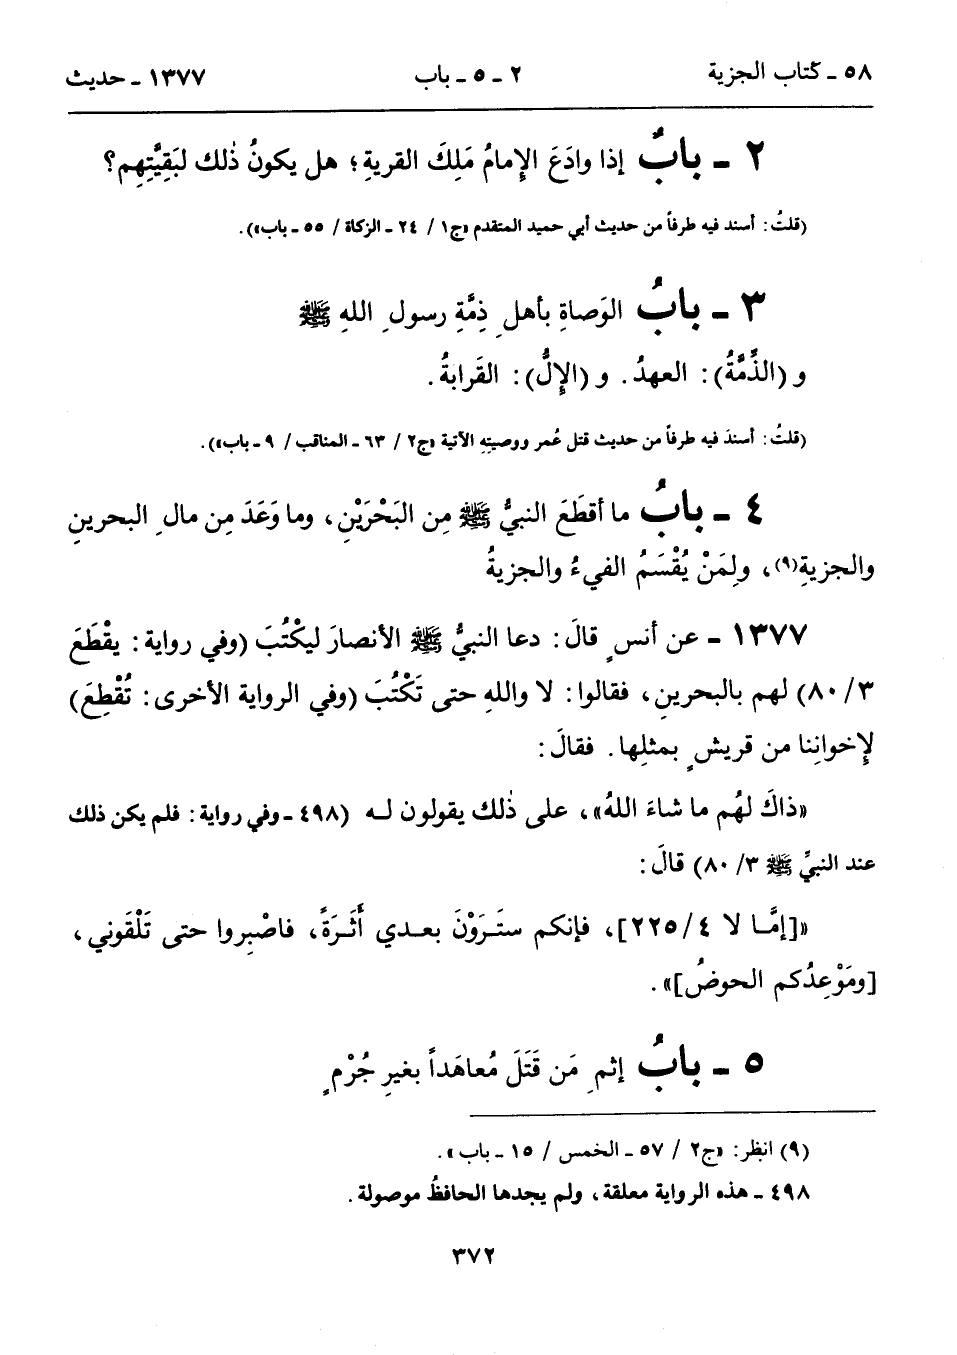 ٥٨ ـ كتاب الجزية ٢ ـ ٥ ـ باب ١٣٧٧ ـ حديث
٢ ـ بابٌ إذا وادَعَ الإِمامُ مَلِكَ القريةِ؛ هل يكونُ ذٰلك لبَقِيَّتِهِم؟
(قلتُ: أسند فيه طرفاً من حديث أبي حميد المتقدم «ج١ / ٢٤ ـ الزكاة / ٥٥ ـ باب»).
٣ ـ بابُ الوَصاةِ بأهلِ ذِمَّةِ رسولِ اللهِ ﷺ
و (الذِّمَّةُ): العهدُ. و (الإِلُّ): القَرابةُ.
(قلتُ: أسندَ فيه طرفاً من حديث قتل عُمر ووصيتِهِ الآتية «ج٢ / ٦٣ ـ المناقب / ٩ ـ باب»).
٤ ـ بابُ ما أقطَعَ النبيُّ ﷺ مِن البَحْرَيْنِ، وما وَعَدَ مِن مالِ البحرينِ
والجزيةِ(٩)، ولِمَنْ يُقْسَمُ الفيءُ والجزيةُ
١٣٧٧ ـ عن أنسٍ قالَ: دعا النبيُّ ﷺ الأنصارَ ليكْتُبَ (وفي رواية: يقْطَعَ
٨٠/٣) لهم بالبحرينِ، فقالوا: لا واللهِ حتى تَكْتُبَ (وفي الرواية الأخرى: تُقْطِعَ)
لإخوانِنا من قريشٍ بمثلِها. فقالَ:
«ذاكَ لهُم ما شاءَ اللهُ»، على ذٰلك يقولون لـه (٤٩٨ ـ وفي رواية: فلم يكن ذلك
عند النبيِّ ﷺ ٨٠/٣) قالَ:
«[إمَّـا لا ٢٢٥/٤]، فإنكم ستَـرَوْنَ بعـدي أَثَـرَةً، فاصْبِروا حتى تَلْقَوني،
[ومَوْعِدُكم الحوضُ]».
٥ ـ بابُ إثمِ مَن قَتَلَ مُعاهَداً بغيرِ جُرْمٍ
(٩) انظر: «ج٢ / ٥٧ ـ الخمس / ١٥ ـ باب».
٤٩٨ ـ هذه الرواية معلقة، ولم يجدها الحافظُ موصولة.
٣٧٢